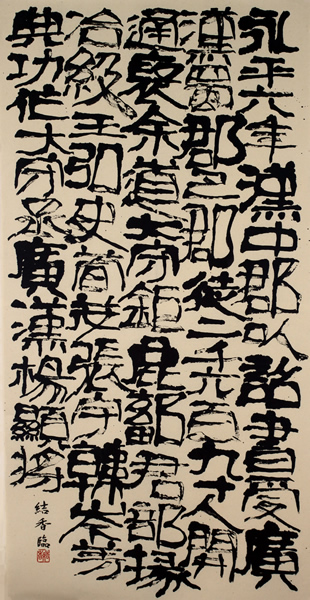 永平六年漢中郡以詔書受廣
漢蜀郡巴郡徒二千六百九十人開
通褒余道大守鉅鹿鄐君部掾
冶級王弘史荀茂張宇韓岑等
典功作大守丞廣漢楊顯將
結香臨